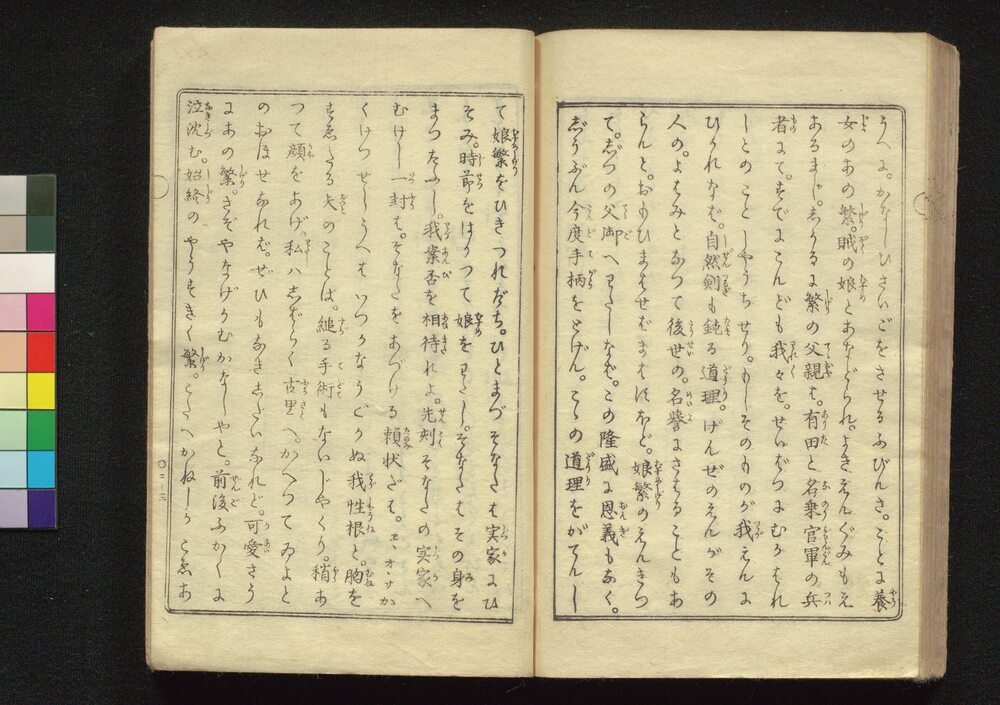 うへに。かなしひさいごをさせるふびんさ。ことに養
女のあの繁。賊の娘とあなどられ。よきえんぐみもえ
あるまじ。しかるに繁の父親は。有田と名乗官軍の兵
者にて。すでにこんども我々を。せいばつにむかはれ
しとのこと しやうちせり。もしそのものが我えんに
ひかれなば。自然剣も鈍る道理。げんぜのえんがその
人の。よはみとなつて後世の。名誉にさはることもあ
らんと。おもひまはせばまはすほど。娘繁のえんきつ
て。じつの父御へわたしなば。この隆盛に恩義もなく。
じうぶん今度手柄をとげん。こゝの道理をがてんし
て娘繁をひきつれだち。ひとまづそなたは実家にひ
そみ。時節をはかつて娘をわたし。そなたはその身を
まつたふし。我案否を相待れよ。先刻そなたの実家へ
むけし一封は。そなたをあづける頼状だは。ヱヽオヽサか
くけつせしうへは いつかなうごかぬ我性根と。胸を
すゑたる夫のことば。縋る手術もないじやくり。稍あ
つて顔をあげ。私ハしばらく古里へ。かへつてゐよと
のおほせなれば。ぜひもなきしだいなれど。可愛さう
にあの繁。さぞやなげかむかなしやと。前後ふかくに
泣沈む。始終のやうすきく繁。こたへかねしかこゑあ